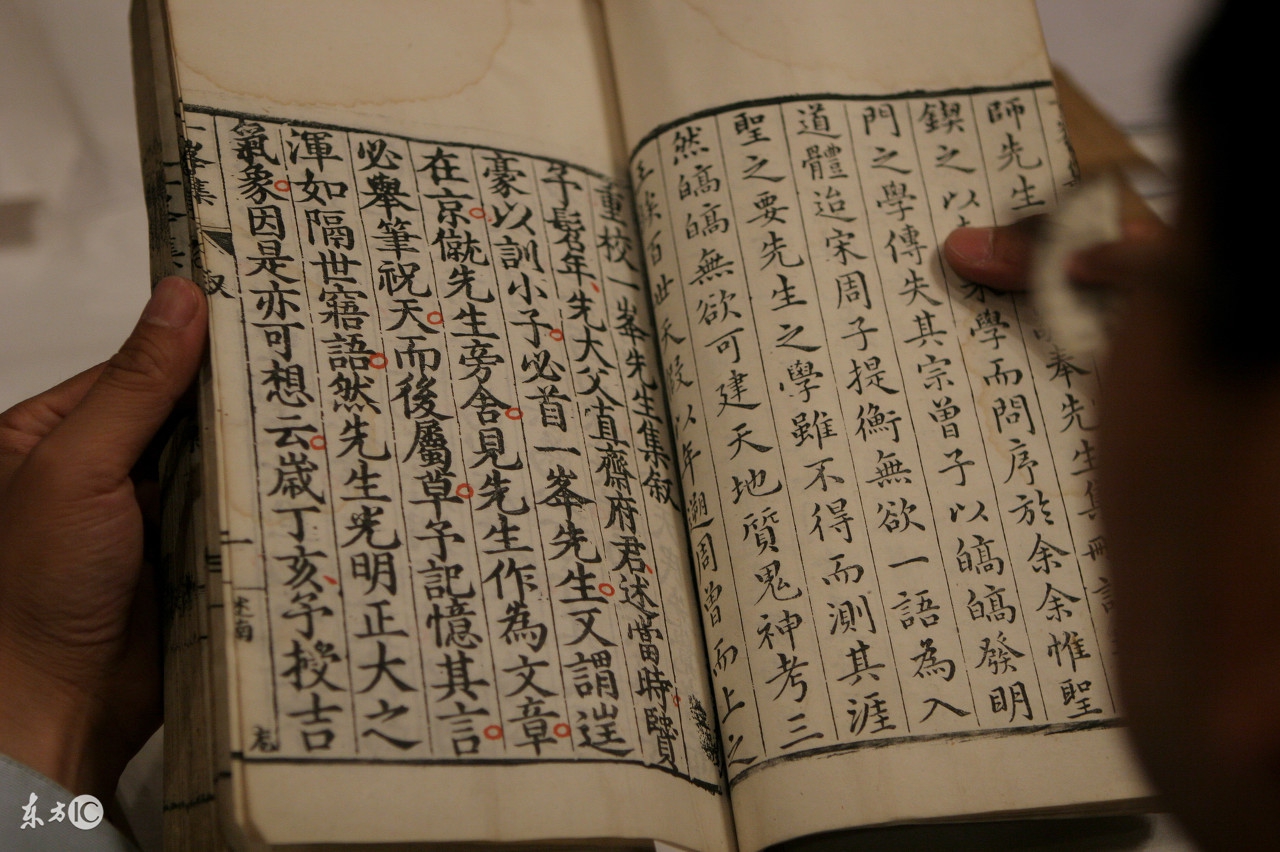 奉先生集
師先生
學而問序於余余惟聖
鍥之以
門之學傳失其宗曾子以皜皜發明
道體迨宋周子提衡無欲一語為入
聖之要先生之學雖不得而測其涯
然皜皜無欲可建天地質鬼神考三
百
天
以年遡周曾而上之
重校一峯先生集叙
予髫年先大父直齋府君述當時賢
豪以訓小子必首一峯先生又謂逞
在京僦先生旁舍見先生作為文章
必舉筆祝天而後屬草予記憶其言
渾如隔世寤語然先生光明正大之
氣象因是亦可想云歲丁亥予授吉
一峯集
叙
一
东方IC